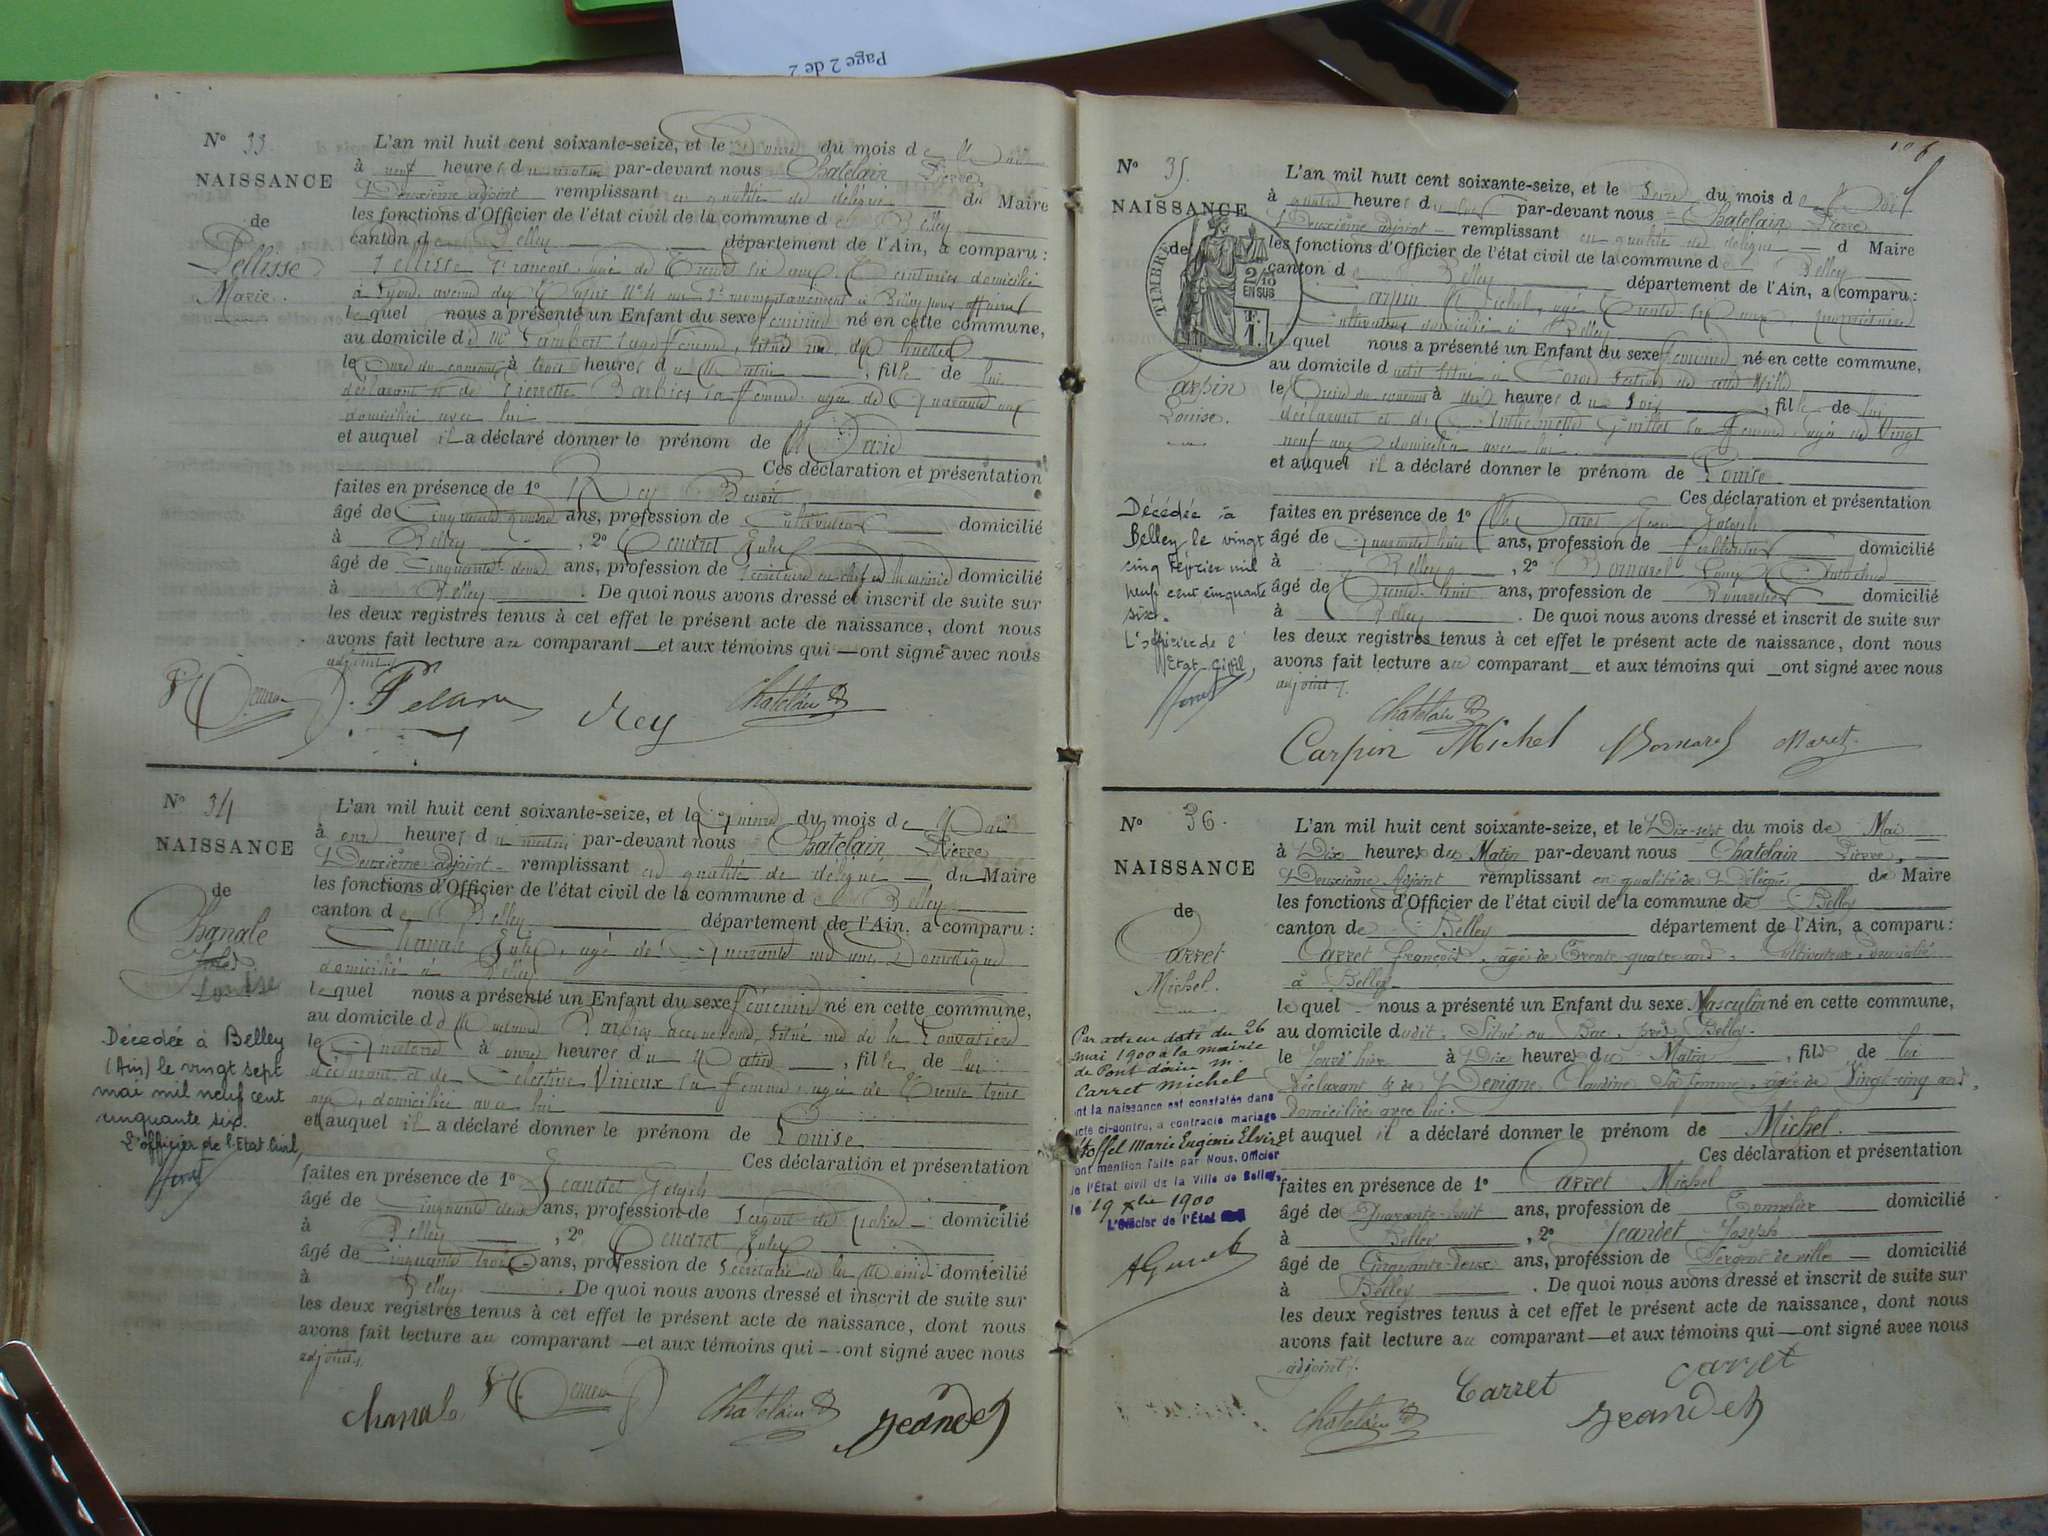 Page 2 de 2
N° 33.
NAISSANCE
de
Pellisse
Marie.
L'an mil huit cent soixante-seize, et le douze du mois de Mai
à neuf heures du matin par-devant nous Chatelain Pierre
Deuxième adjoint remplissant en qualité de délégué du Maire
les fonctions d'Officier de l'état civil de la commune de Belley
canton de Belley département de l'Ain, a comparu :
François, âgé de Trente six ans, domicilié
à Lyon, avenue
lequel nous a présenté un Enfant du sexe féminin né en cette commune,
au domicile de Lambert sage femme, situé rue des
le onze du courant à trois heures du Matin, fille de lui
déclarant et de Pierrette Barbier sa femme, âgée de Quarante ans
domiciliée avec lui
et auquel il a déclaré donner le prénom de Marie
Ces déclaration et présentation
faites en présence de 1° Rey Benoit
âgé de Cinquante quatre ans, profession de Cultivateur domicilié
à Belley, 2° Jules
âgé de Cinquante deux ans, profession de Secrétaire en chef de la mairie domicilié
à Belley. De quoi nous avons dressé et inscrit de suite sur
les deux registres tenus à cet effet le présent acte de naissance, dont nous
avons fait lecture au comparant et aux témoins qui ont signé avec nous
adjoint.
Rey Chatelain
N° 34
NAISSANCE
de
Chanale
Louise
Décédée à Belley
(Ain) le vingt sept
mai mil neuf cent
cinquante six.
L'officier de l'Etat Civil,
L'an mil huit cent soixante-seize, et le Quinze du mois de Mai
à onze heures du matin par-devant nous Chatelain Pierre
Deuxième adjoint remplissant en qualité de délégué du Maire
les fonctions d'Officier de l'état civil de la commune de Belley
canton de Belley département de l'Ain, a comparu :
Chanale Jules, âgé de quarante ans, Domestique
domicilié à Belley
lequel nous a présenté un Enfant du sexe féminin né en cette commune,
au domicile de Madame accoucheuse, situé rue de la
le Quatorze à onze heures du Matin, fille de lui
déclarant et de Célestine Virieux sa femme, âgée de Trente trois
ans, domiciliée avec lui
et auquel il a déclaré donner le prénom de Louise
Ces déclaration et présentation
faites en présence de 1° Jeandet Joseph
âgé de Cinquante deux ans, profession de Sergent de police domicilié
à Belley, 2° Jules
âgé de Cinquante trois ans, profession de Secrétaire de la Mairie domicilié
à Belley. De quoi nous avons dressé et inscrit de suite sur
les deux registres tenus à cet effet le présent acte de naissance, dont nous
avons fait lecture au comparant et aux témoins qui ont signé avec nous
adjoint.
Chanale Chatelain Jeandet
N° 35.
NAISSANCE
de
TIMBRE
2/10
EN SUS
F.
1.
Carpin
Louise.
Décédée à
Belley le vingt
cinq Février mil
neuf cent cinquante
six.
L'officier de l'
Etat-Civil,
L'an mil huit cent soixante-seize, et le Seize du mois de Mai
à quatre heures du soir par-devant nous Chatelain Pierre
Deuxième adjoint remplissant en qualité de délégué d Maire
les fonctions d'Officier de l'état civil de la commune de Belley
canton de Belley département de l'Ain, a comparu :
Carpin Michel, âgé Trente six ans, propriétaire
Cultivateur domicilié à Belley
lequel nous a présenté un Enfant du sexe féminin né en cette commune,
au domicile dudit situé à section de cette ville
le Quinze du courant à dix heures du Soir, fille de lui
déclarant et de Anthelmette Guillet sa femme, âgée de Vingt
neuf ans domiciliée avec lui.
et auquel il a déclaré donner le prénom de Louise
Ces déclaration et présentation
faites en présence de 1° Maret Jean Joseph
âgé de Quarante huit ans, profession de ferblantier domicilié
à Belley, 2° Bornarel Louis Anthelme
âgé de Trente huit ans, profession de Bourrelier domicilié
à Belley. De quoi nous avons dressé et inscrit de suite sur
les deux registres tenus à cet effet le présent acte de naissance, dont nous
avons fait lecture au comparant et aux témoins qui ont signé avec nous
adjoint.
Chatelain
Carpin Michel Bornarel Maret
N° 36.
NAISSANCE
de
Carret
Michel.
Par acte en date du 26
mai 1900 à la mairie
de Pont d'ain M.
Carret Michel
ont la naissance est constatée dans
acte ci-contre, a contracté mariage
Stoffel Marie Eugénie Elvire
ont mention faite par Nous, Officier
de l'Etat civil de la Ville de Belley,
le 19 xbre 1900
L'Officier de l'Etat
L'an mil huit cent soixante-seize, et le Dix-sept du mois de Mai
à Dix heures du Matin par-devant nous Chatelain Pierre,
Deuxième Adjoint remplissant en qualité de Délégué de Maire
les fonctions d'Officier de l'état civil de la commune de Belley
canton de Belley département de l'Ain, a comparu :
Carret françois, âgé de Trente-quatre ans, Cultivateur, domicilié
à Belley
lequel nous a présenté un Enfant du sexe Masculin né en cette commune,
au domicile dudit, Situé au Bac, près Belley.
le jourd'hier à Dix heures du Matin, fils de lui
Déclarant & de Devigne Claudine Sa femme, âgée de Vingt-cinq ans,
domiciliée avec lui.
et auquel il a déclaré donner le prénom de Michel.
Ces déclaration et présentation
faites en présence de 1° Carret Michel
âgé de Quarante-huit ans, profession de Tonnelier domicilié
à Belley, 2° Jeandet Joseph
âgé de Cinquante-deux ans, profession de Sergent de ville domicilié
à Belley. De quoi nous avons dressé et inscrit de suite sur
les deux registres tenus à cet effet le présent acte de naissance, dont nous
avons fait lecture au comparant et aux témoins qui ont signé avec nous
adjoint.
Chatelain Carret Jeandet Carret